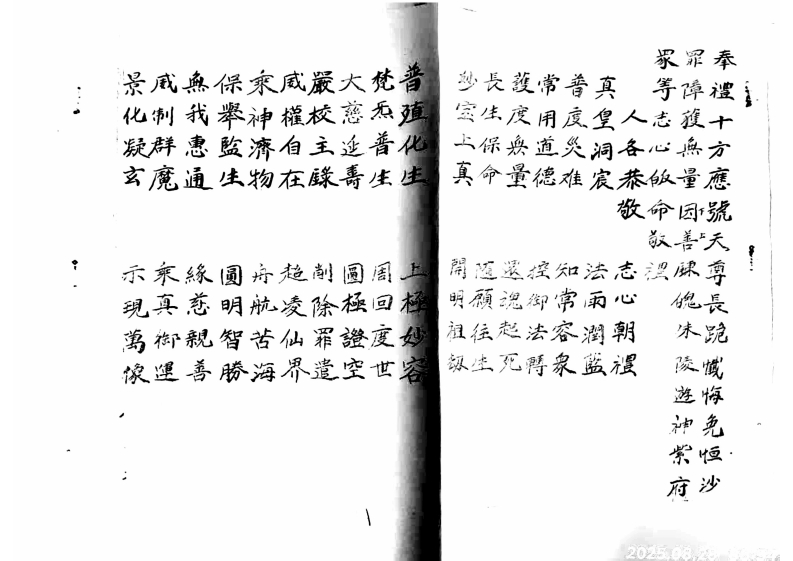 奉禮十方應號天尊長跪懺悔免恒沙
罪障獲無量因善練魄朱陵遊神紫府
眾等志心皈命敬禮
人各恭敬
志心朝禮
真皇洞宸
法雨潤藍
普度災难
知常容衆
常用道德
控御法轉
護度無量
還魂起死
長生保命
隨願往生
妙宝上真
開明祖劫
普殖化生
上極妙容
梵炁普生
周回度世
大慈延壽
圖極證空
嚴校主錄
削除罪遣
威權自在
超凌仙界
乘神濟物
舟航苦海
保舉監生
圓明智勝
無我惠通
緣慈親善
威制群魔
乘真御運
景化凝玄
示現萬像
2025.08.2